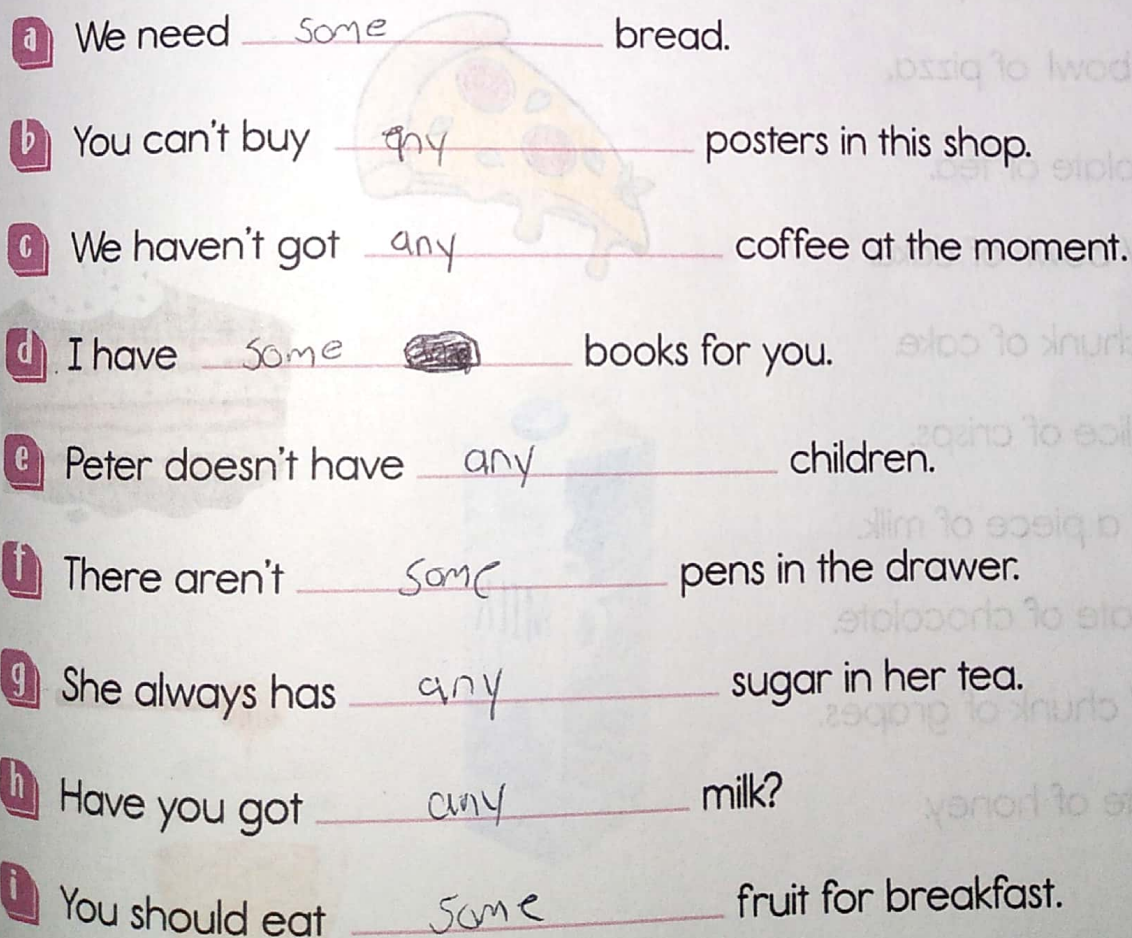 a We need some bread.
b You can't buy any posters in this shop.
c We haven't got any coffee at the moment.
d I have some books for you.
e Peter doesn't have any children.
f There aren't some pens in the drawer.
g She always has any sugar in her tea.
h Have you got any milk?
i You should eat some fruit for breakfast.